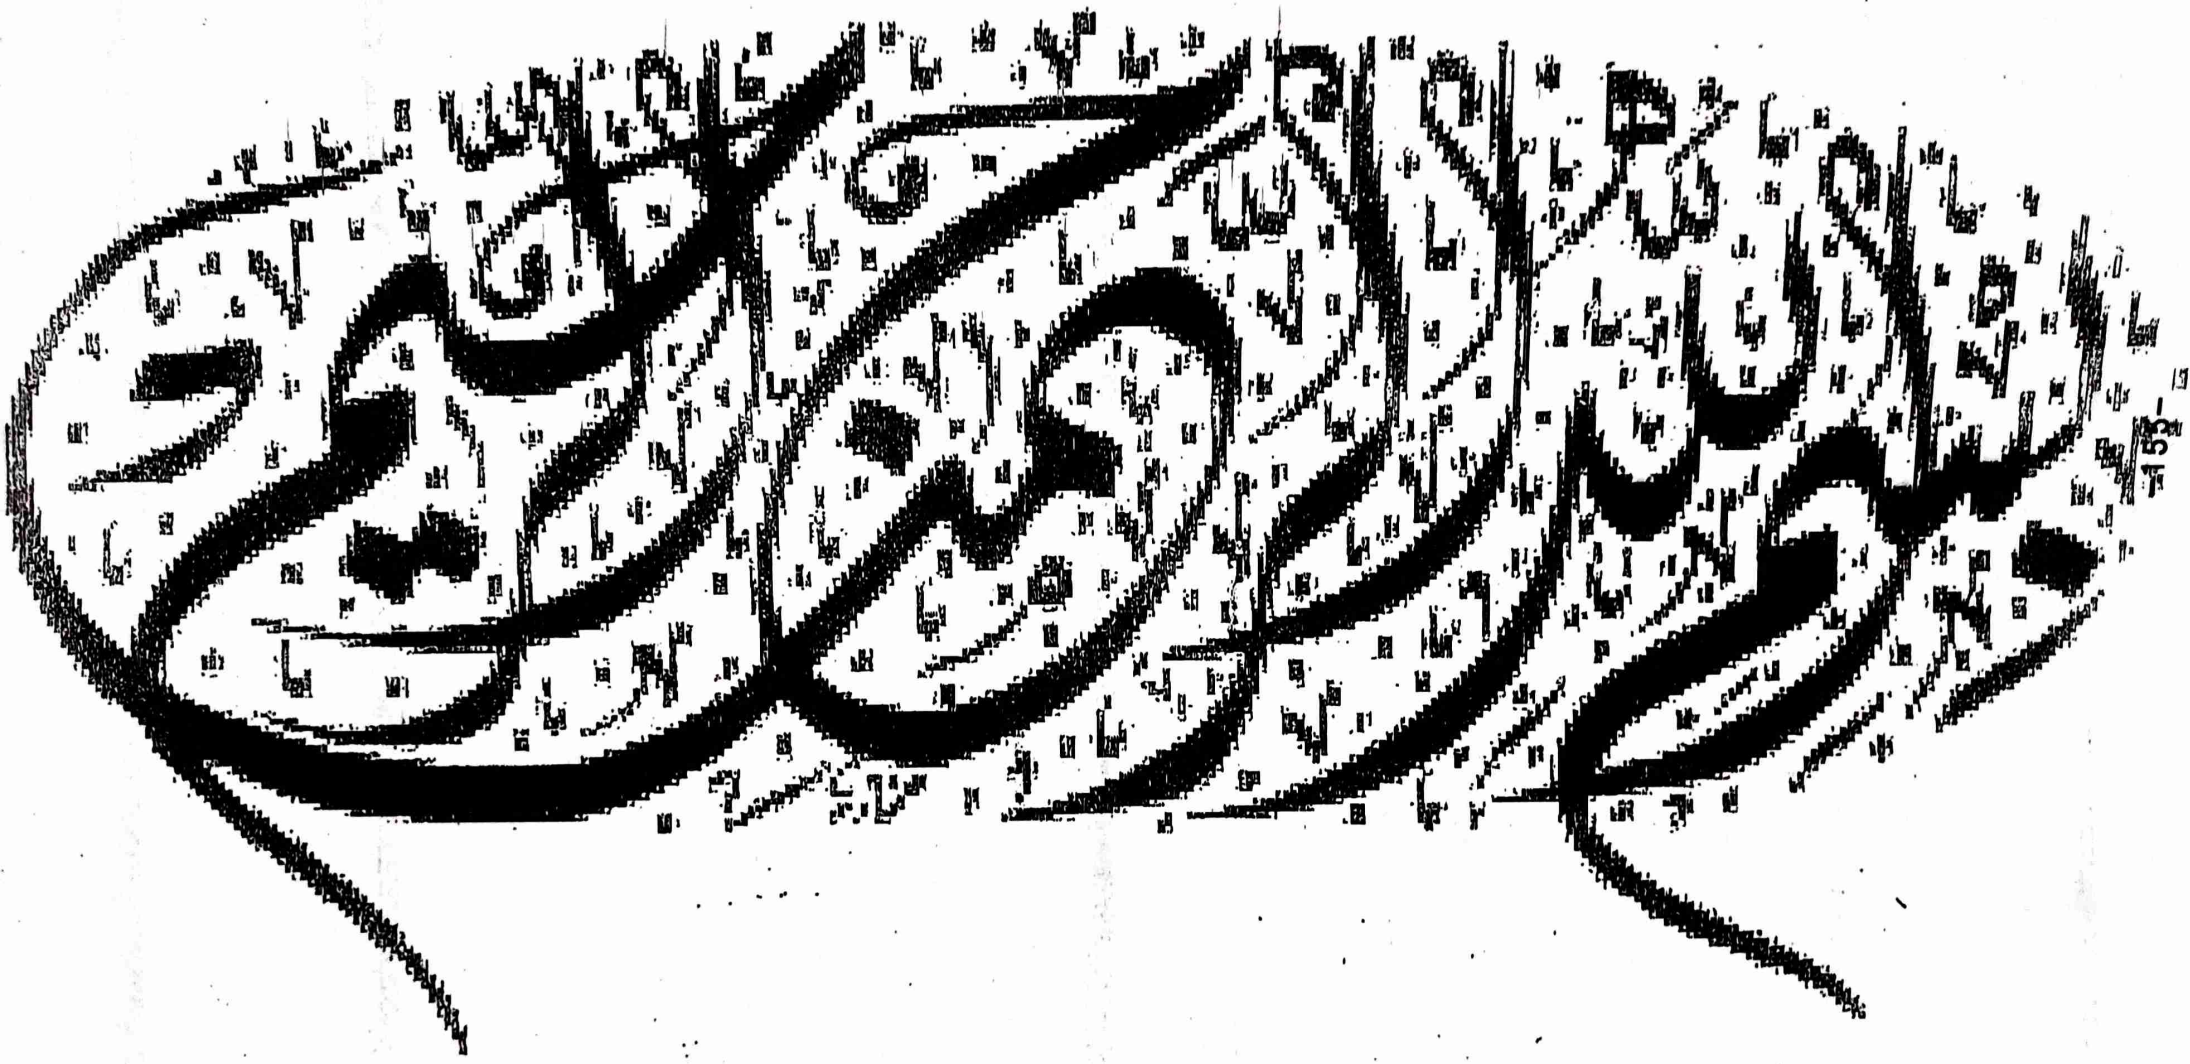 بسم الله الرحمن الرحيم
-155-